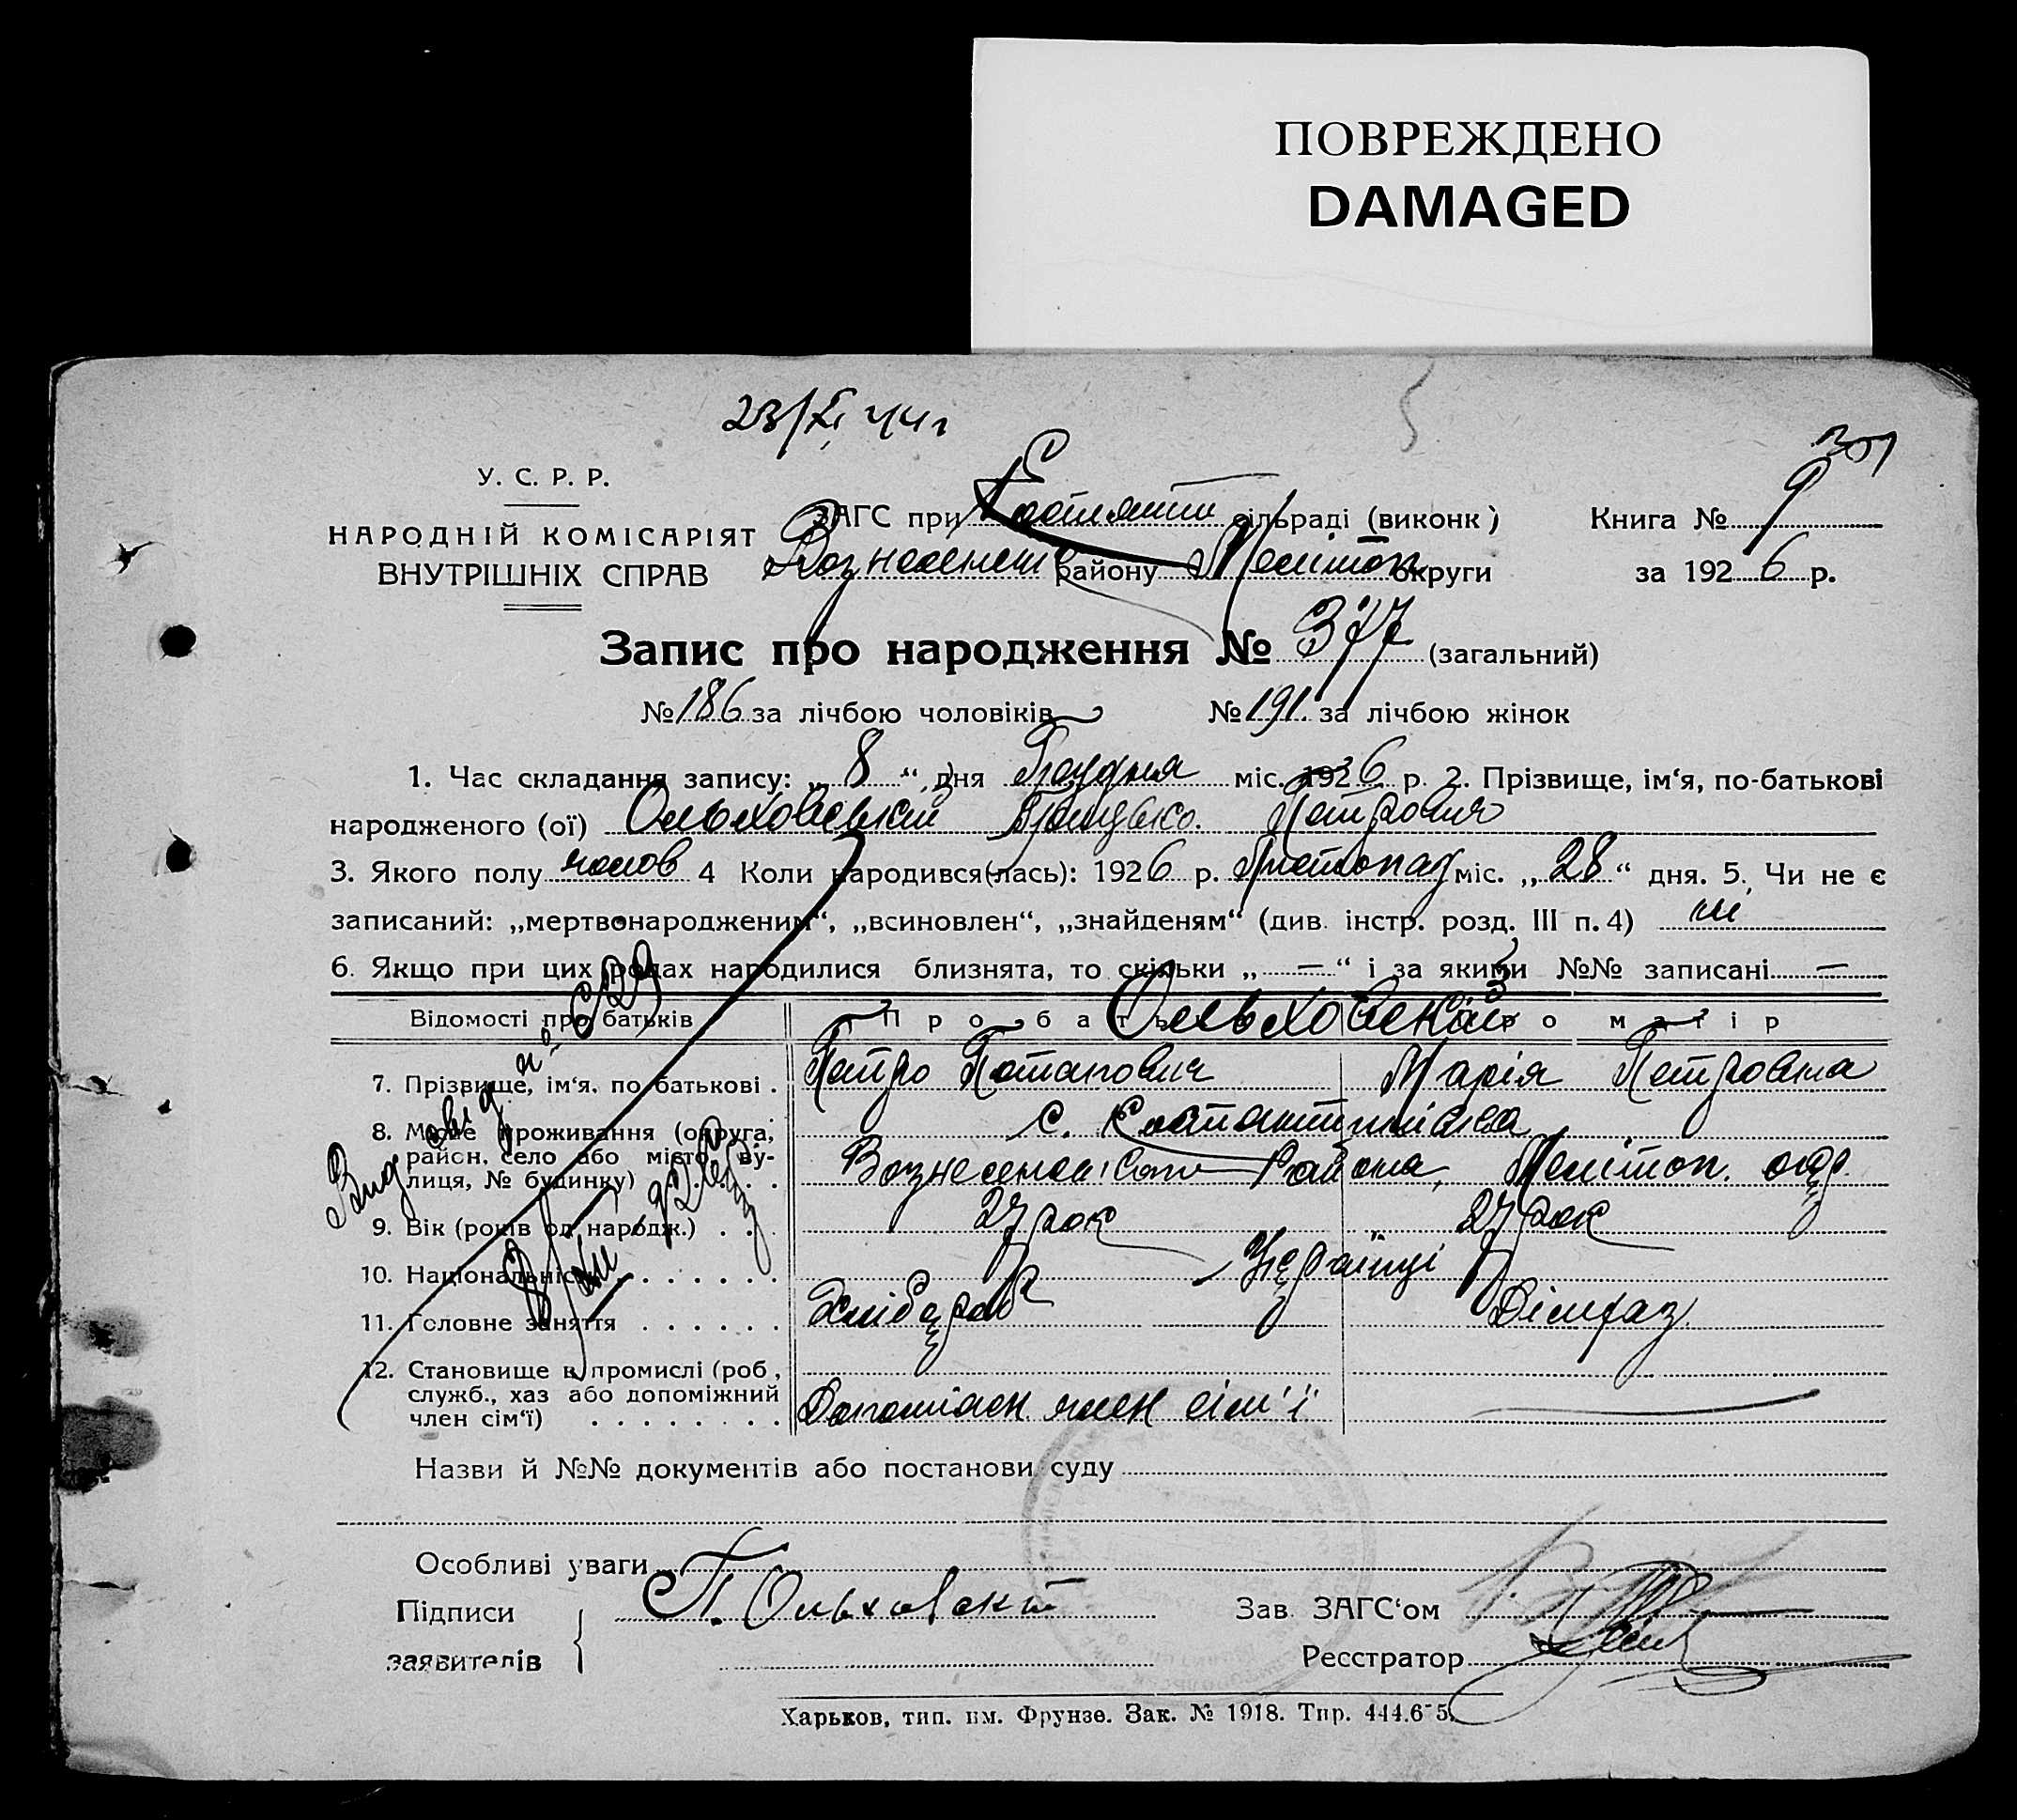 ПОВРЕЖДЕНО
DAMAGED
23/XI 44 г
У. С. Р. Р.
НАРОДНІЙ КОМІСАРІЯТ
ВНУТРІШНІХ СПРАВ
ЗАГС при сільраді (виконк) Книга № 9
району Мелітоп округи за 1926 р.
Запис про народження № 377 (загальний)
№ 186 за лічбою чоловіків № 191 за лічбою жінок
1. Час складання запису: „ 8 “ дня Грудня міс. 1926 р. 2. Прізвище, ім‘я, по-батькові
народженого (ої) Ольховський Грицько Петрович
3. Якого полу чолов 4 Коли народився(лась): 1926 р. Листопад міс. „ 28 “ дня. 5. Чи не є
записаний: „мертвонародженим“, „всиновлен“, „знайденям“ (див. інстр. розд. III п. 4) ні
6. Якщо при цих родах народилися близнята, то скільки „ — “ і за якими №№ записані —
Відомості про батьків Про батька Про матір
Ольховські
7. Прізвище, ім‘я, по батькові . Петро Потапович Марія Петровна
8. Місце проживання (округа,
район, село або місто, ву-
лиця, № будинку) . . . . с. Костянтинівка
Района, Мелітоп. окр.
9. Вік (років од народж.) . . . 27 рок 27 рок
10. Національність . . . . . . . Українці
11. Головне заняття . . . . . . Хлібороб
12. Становище в промислі (роб.,
служб., хаз або допоміжний
член сім‘ї) . . . . . . . . член сім'ї —
Назви й №№ документів або постанови суду
Особливі уваги
Підписи
заявителів
П. Ольховский
Зав. ЗАГС‘ом
Реєстратор
Харьков, тип. им. Фрунзе. Зак. № 1918. Тир.